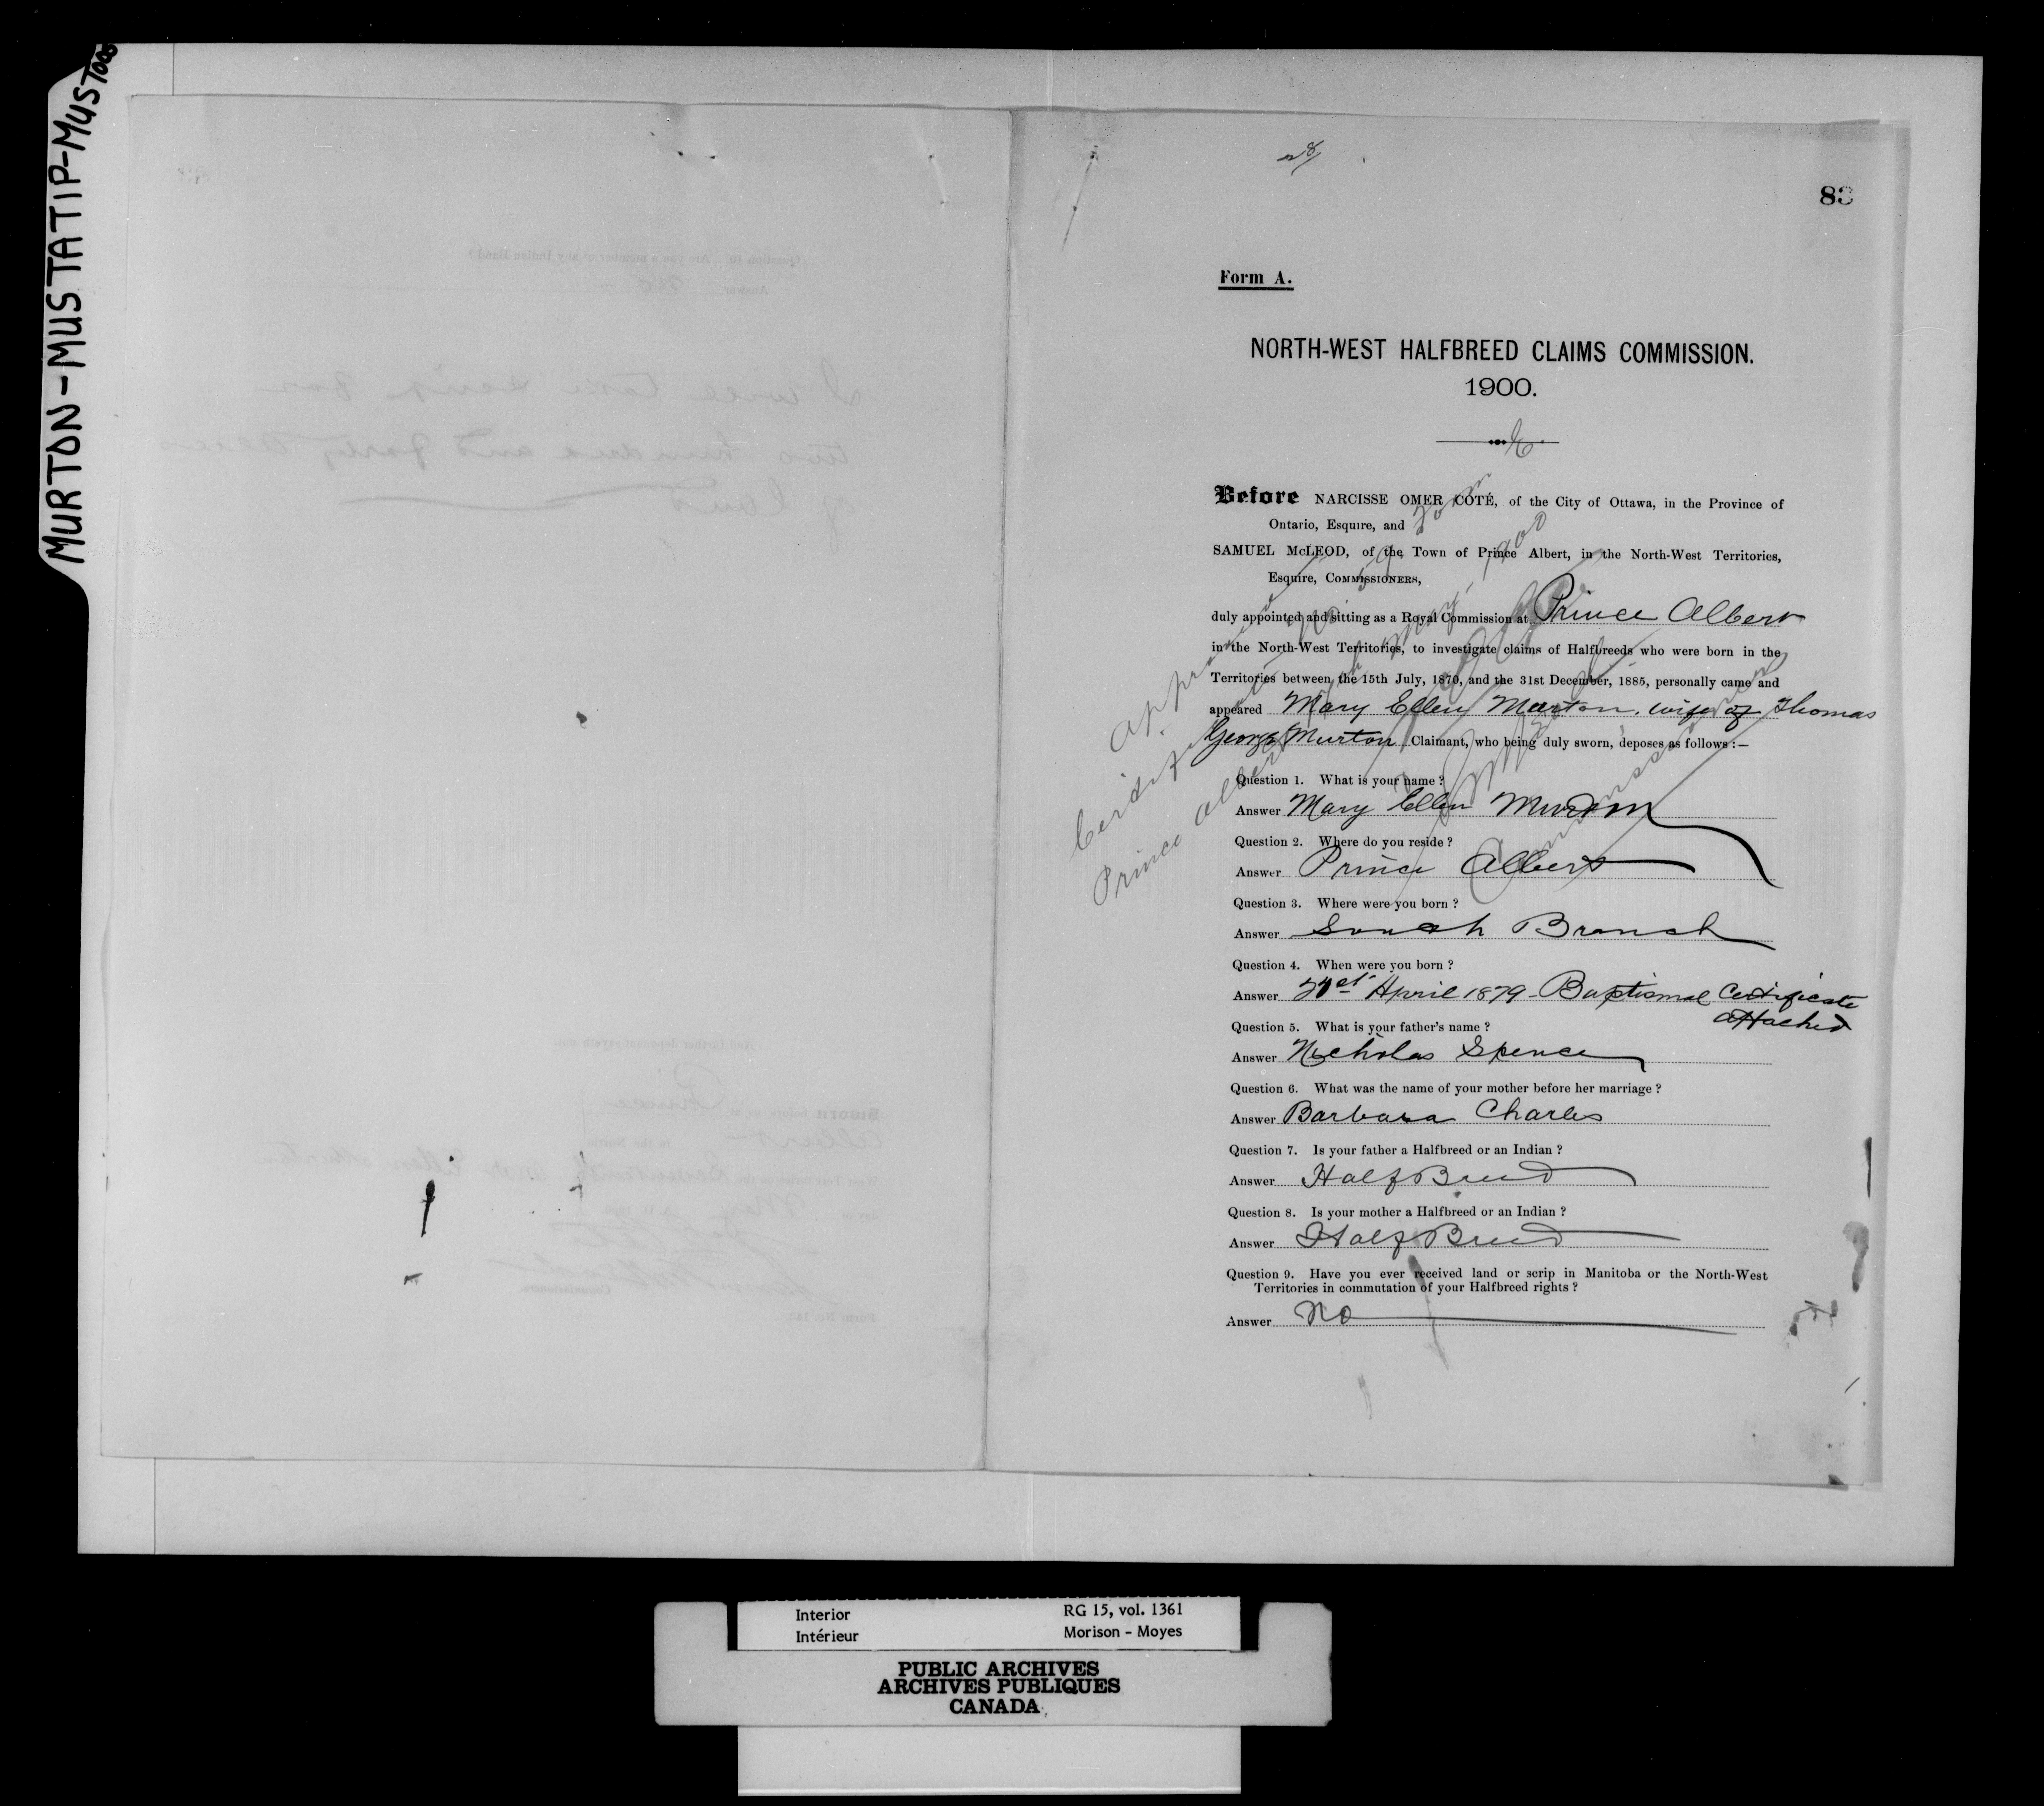 MURTON-MUSTATIP-MUSTOOS
28
83
Form A.
NORTH-WEST HALFBREED CLAIMS COMMISSION.
1900.
Before NARCISSE OMER CÔTÉ, of the City of Ottawa, in the Province of
Ontario, Esquire, and
SAMUEL McLEOD, of the Town of Prince Albert, in the North-West Territories,
Esquire, COMMISSIONERS,
duly appointed and sitting as a Royal Commission at Prince Albert
in the North-West Territories, to investigate claims of Halfbreeds who were born in the
Territories between the 15th July, 1870, and the 31st December, 1885, personally came and
appeared Mary Ellen Murton, wife of Thomas
George Murton Claimant, who being duly sworn, deposes as follows :—
Approved
Certificate
Prince Albert
Commissioner
Question 1. What is your name ?
Answer Mary Ellen Murton
Question 2. Where do you reside ?
Answer Prince Albert
Question 3. Where were you born ?
Answer South Branch
Question 4. When were you born ?
Answer 21st April 1879 - Baptismal Certificate
attached
Question 5. What is your father's name ?
Answer Nicholas Spence
Question 6. What was the name of your mother before her marriage ?
Answer Barbara Charles
Question 7. Is your father a Halfbreed or an Indian ?
Answer Half Breed
Question 8. Is your mother a Halfbreed or an Indian ?
Answer Half Breed
Question 9. Have you ever received land or scrip in Manitoba or the North-West
Territories in commutation of your Halfbreed rights ?
Answer No
Interior
Intérieur
RG 15, vol. 1361
Morison - Moyes
PUBLIC ARCHIVES
ARCHIVES PUBLIQUES
CANADA